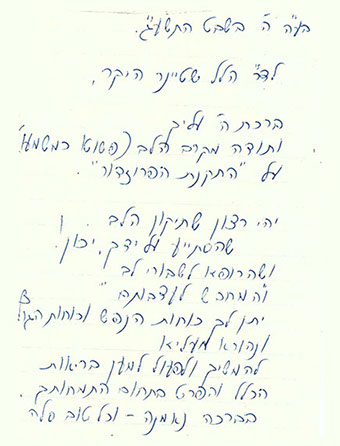 בע"ה ה' בשבט התשע"ג.
לדר' הלל שטיינר היקר,
ברכת ה' עליך
ותודה מקרב הלב (פשוטו כמשמעו)
על "התקנת הפרוזדור".
יהי רצון שתיקון הלב
שהסתייע על ידך, יכון.
ושהרופא לשבורי לב
ומחבש לעצבותם"
יתן לך כוחות הנפש וכוחות הגוף
ונהורא מעליא
להמשיך ולפעול למען בריאות
הכלל והפרט בתחום התמחותך.
בברכה נאמנה - וכל טוב סלה